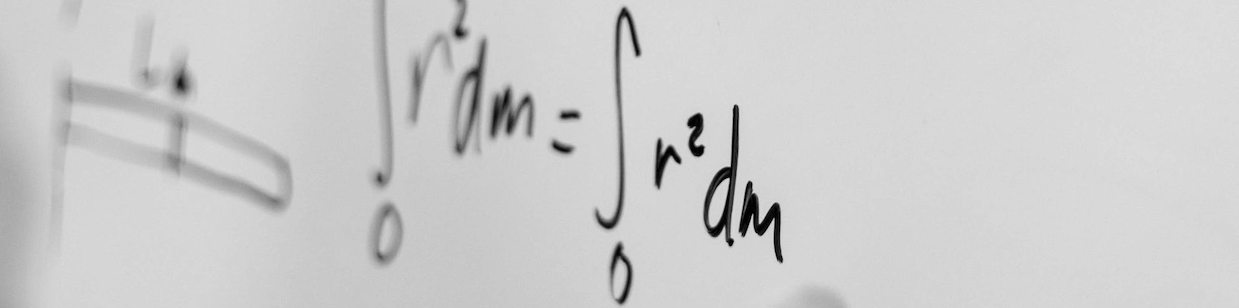 ∫₀ r²dm = ∫₀ r²dm